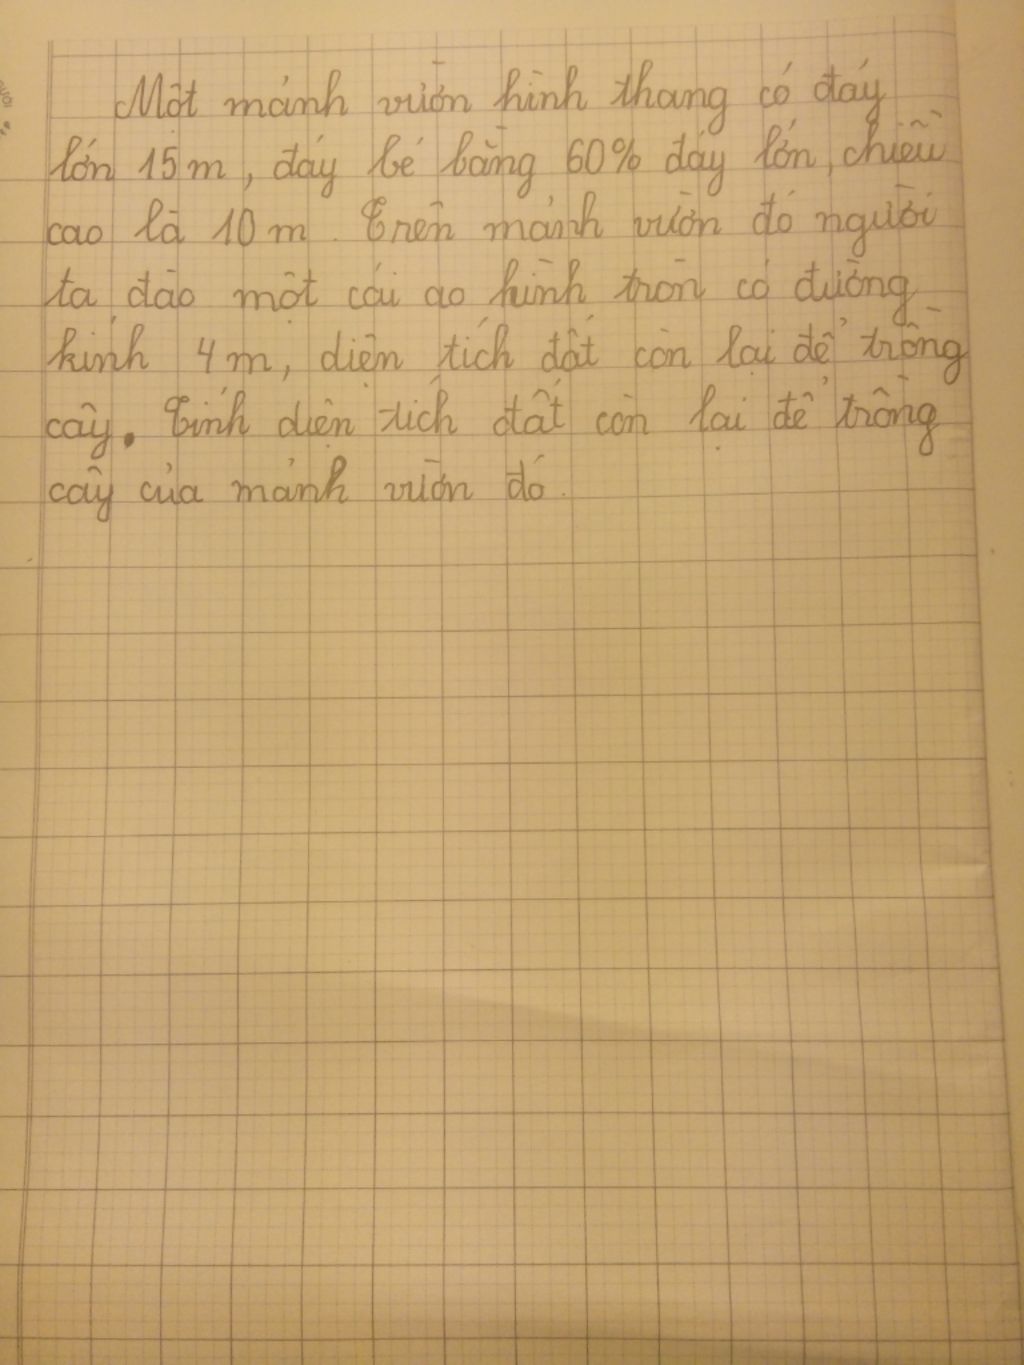 Một mảnh vườn hình thang có đáy
lớn 15 m, đáy bé bằng 60% đáy lớn, chiều
cao là 10 m. Trên mảnh vườn đó người
ta đào một cái ao hình tròn có đường
kính 4 m, diện tích đất còn lại để trồng
cây. Tính diện tích đất còn lại để trồng
cây của mảnh vườn đó.